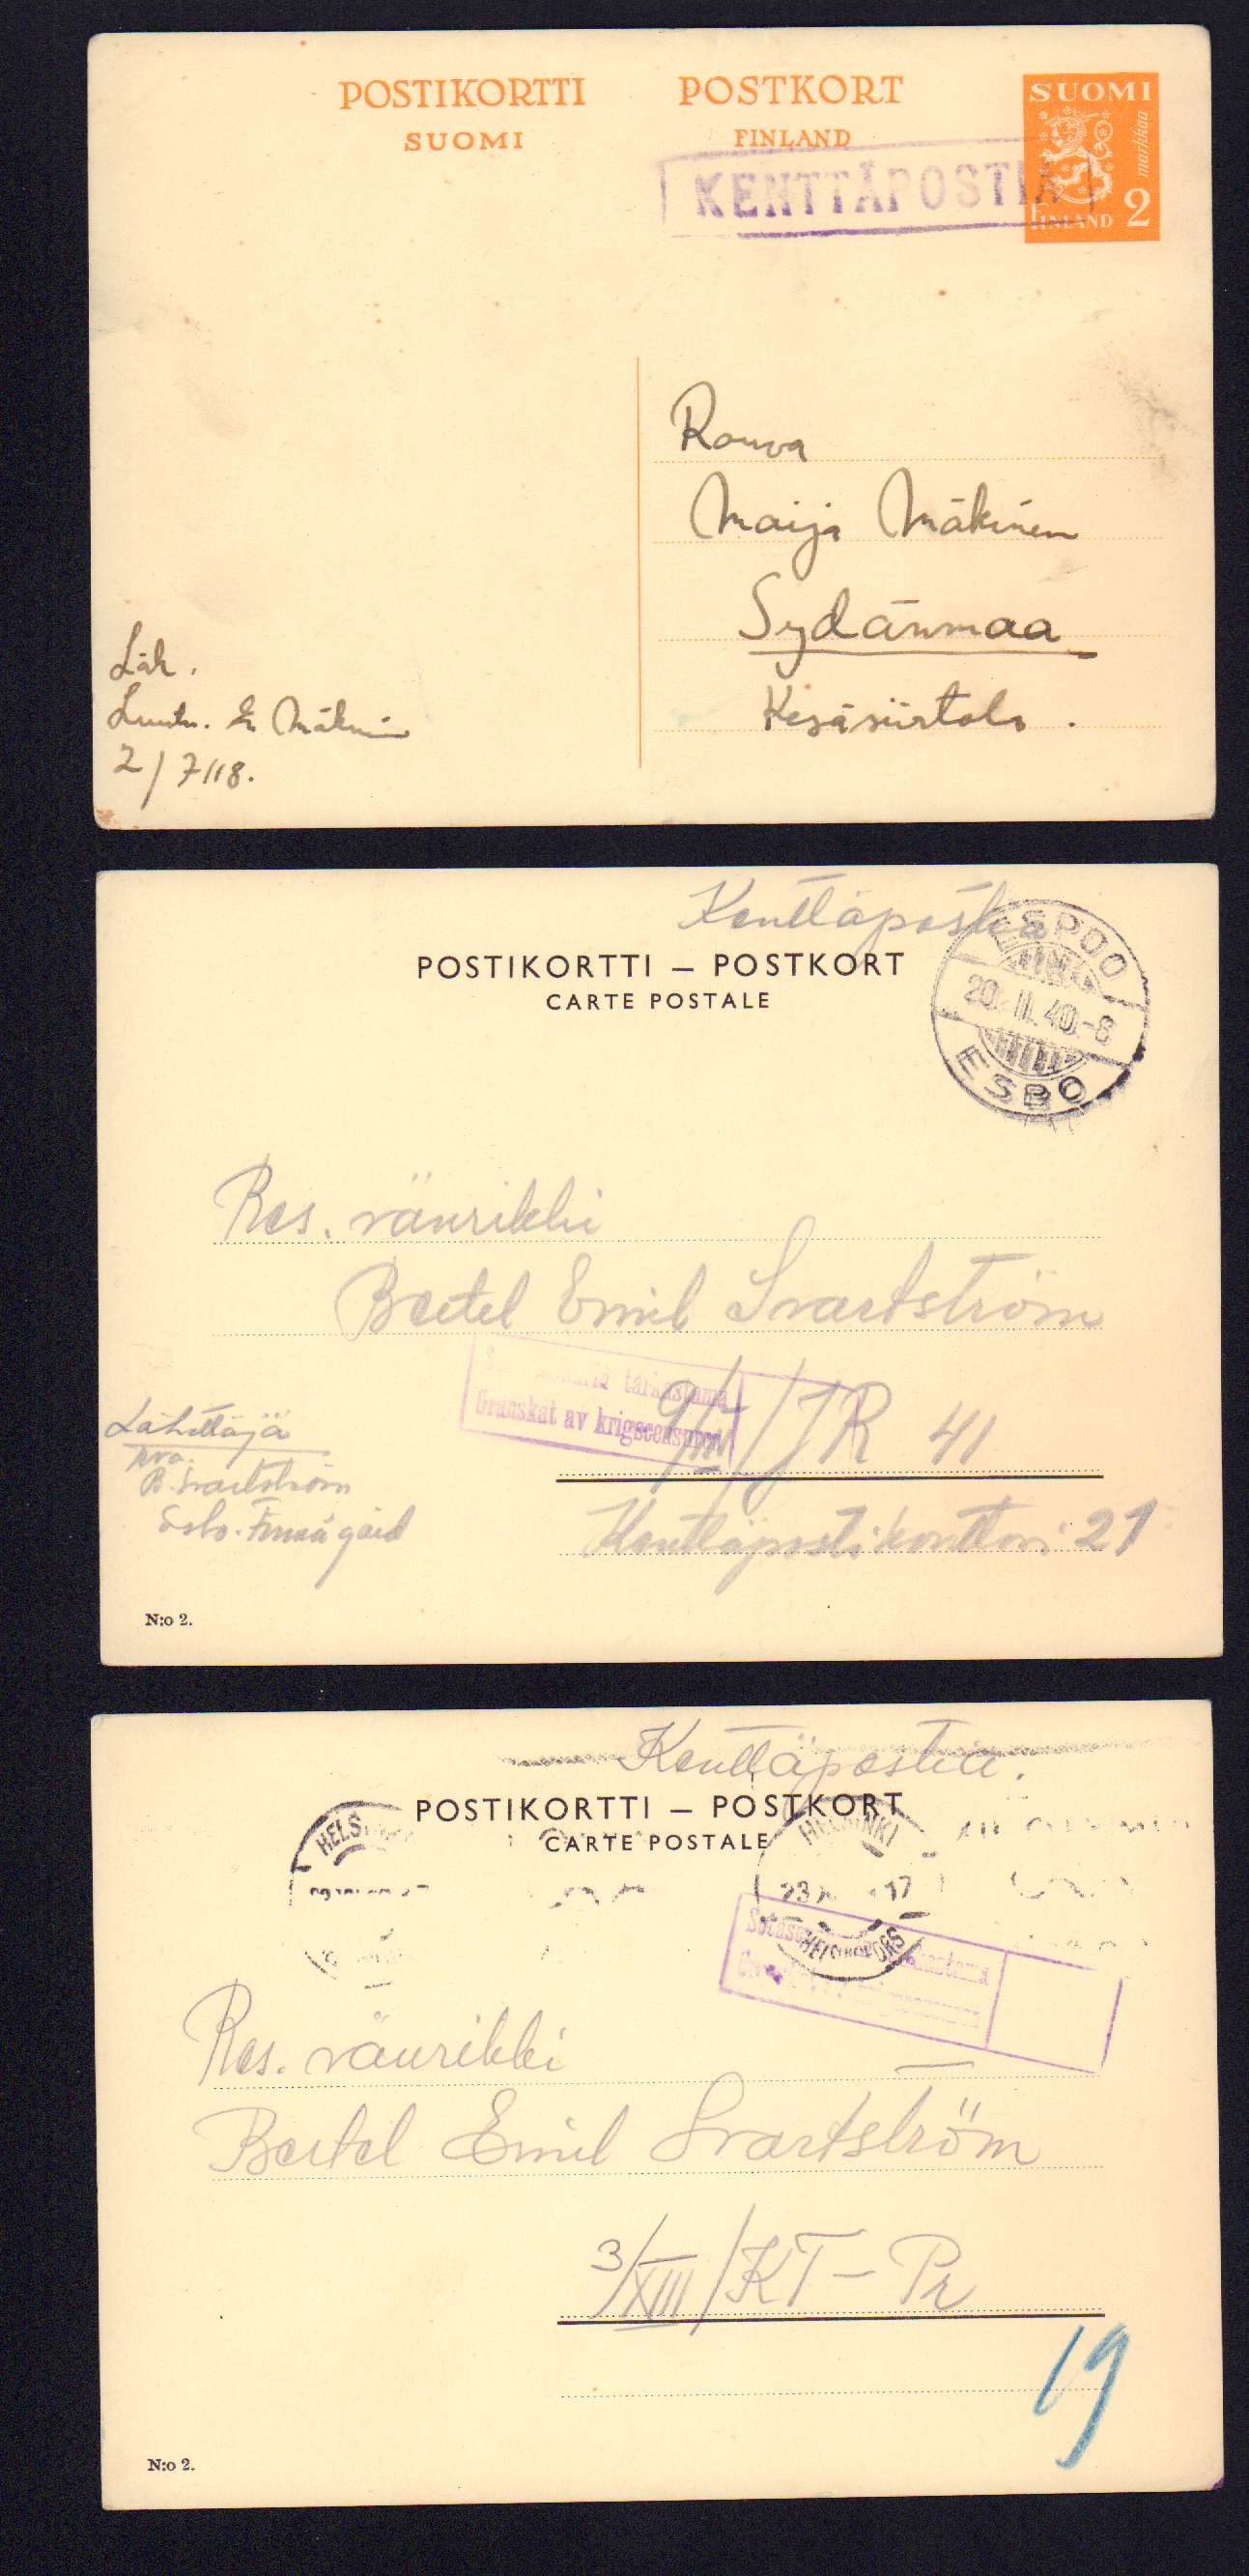 POSTIKORTTI POSTKORT
SUOMI FINLAND
SUOMI
markkaa
FINLAND 2
KENTTÄPOSTIA
Rouva
Maija Mäkinen
Sydänmaa
Kesäsiirtola.
Läh.
Luutn. Mäkinen
2/7118.
Kenttäpostia
POSTIKORTTI — POSTKORT
CARTE POSTALE
ESPOO
20. II. 40.-8
ESBO
Res. vänrikki
Bertel Emil Svartström
tarkastama
Granskat av krigscensuren
9/III/JR 41
Kenttäpostikonttori 21
Lähettäjä
rva.
B. Svartström
Esbo.
N:o 2.
Kenttäpostia.
POSTIKORTTI — POSTKORT
CARTE POSTALE
HELSINKI
HELSINKI
23 17
HELSINGFORS
Res. vänrikki
Bertel Emil Svartström
3/XIII/KT–Pr
19
N:o 2.